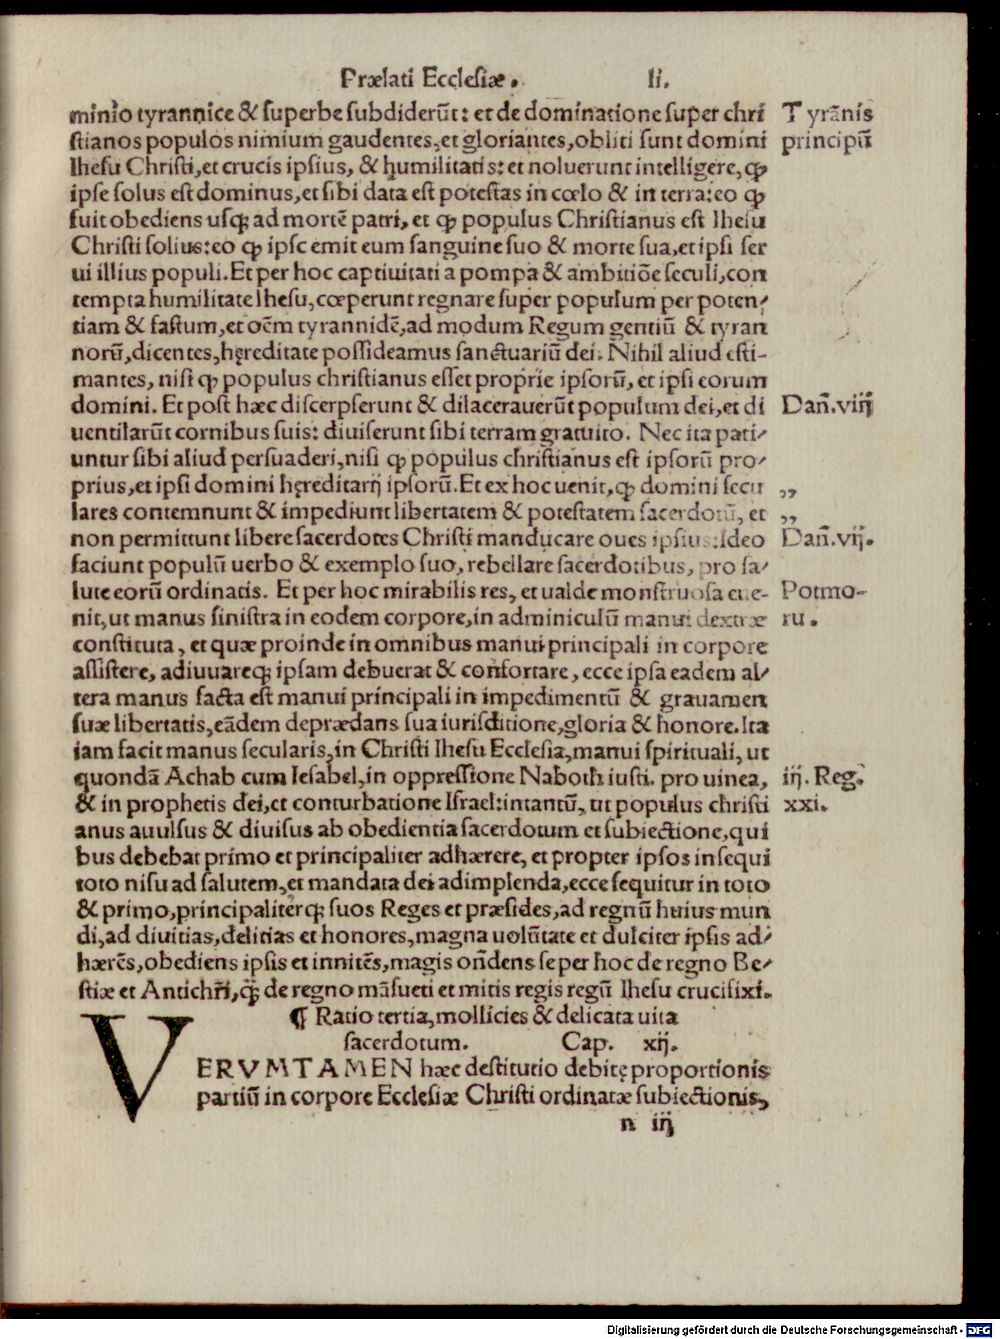 Prælati Ecclesiæ. li.
minio tyrannice & superbe subdiderūt: et de dominatione super chri
Tyrānis
stianos populos nimium gaudentes, et gloriantes, obliti sunt domini
principū
Ihesu Christi, et crucis ipsius, & humilitatis: et noluerunt intelligere, ꝙ
ipse solus est dominus, et sibi data est potestas in cœlo & in terra: eo ꝙ
fuit obediens usq; ad mortē patri, et ꝙ populus Christianus est Ihesu
Christi solius: eo ꝙ ipse emit eum sanguine suo & morte sua, et ipsi ser
ui illius populi. Et per hoc captiuitati a pompa & ambitiōe seculi, con
tempta humilitate Ihesu, cœperunt regnare super populum per poten⸗
tiam & fastum, et oēm tyrannidē, ad modum Regum gentiū & tyran
norū, dicentes, hęreditate possideamus sanctuariū dei. Nihil aliud esti-
mantes, nisi ꝙ populus christianus esset proprie ipsorū, et ipsi eorum
domini. Et post hæc discerpserunt & dilacerauerūt populum dei, et di
Dan̄.viij
uentilarūt cornibus suis: diuiserunt sibi terram gratuito. Nec ita pati⸗
untur sibi aliud persuaderi, nisi ꝙ populus christianus est ipsorū pro⸗
prius, et ipsi domini hęreditarij ipsorū. Et ex hoc uenit, ꝙ domini secu
„
lares contemnunt & impediunt libertatem & potestatem sacerdotū, et
„
non permittunt libere sacerdotes Christi manducare oues ipsius: Ideo
Dan̄.vij.
faciunt populū uerbo & exemplo suo, rebellare sacerdotibus, pro sa⸗
lute eorū ordinatis. Et per hoc mirabilis res, et ualde monstruosa eue-
Potmo-
nit, ut manus sinistra in eodem corpore, in adminiculū manui dextræ
ru.
constituta, et quæ proinde in omnibus manui principali in corpore
assistere, adiuuareq; ipsam debuerat & confortare, ecce ipsa eadem al⸗
tera manus facta est manui principali in impedimentū & grauamen
suæ libertatis, eādem deprædans sua iurisditione, gloria & honore. Ita
iam facit manus secularis, in Christi Ihesu Ecclesia, manui spirituali, ut
quondā Achab cum Iesabel, in oppressione Naboth iusti. pro uinea,
iij. Reg.
& in prophetis dei, et conturbatione Israel: intantū, ut populus christi
xxi.
anus auulsus & diuisus ab obedientia sacerdotum et subiectione, qui
bus debebat primo et principaliter adhærere, et propter ipsos insequi
toto nisu ad salutem, et mandata dei adimplenda, ecce sequitur in toto
& primo, principaliterq; suos Reges et præsides, ad regnū huius mun
di, ad diuitias, delitias et honores, magna uolūtate et dulciter ipsis ad⸗
hærēs, obediens ipsis et innitēs, magis on̄dens se per hoc de regno Be⸗
stiæ et Antichr̄i, q̄; de regno māsueti et mitis regis regū Ihesu crucifixi.
¶ Ratio tertia, mollicies & delicata uita
sacerdotum. Cap. xij.
VERVMTAMEN hæc destitutio debitę proportionis
partiū in corpore Ecclesiæ Christi ordinatæ subiectionis,
n iij
Digitalisierung gefördert durch die Deutsche Forschungsgemeinschaft - DFG